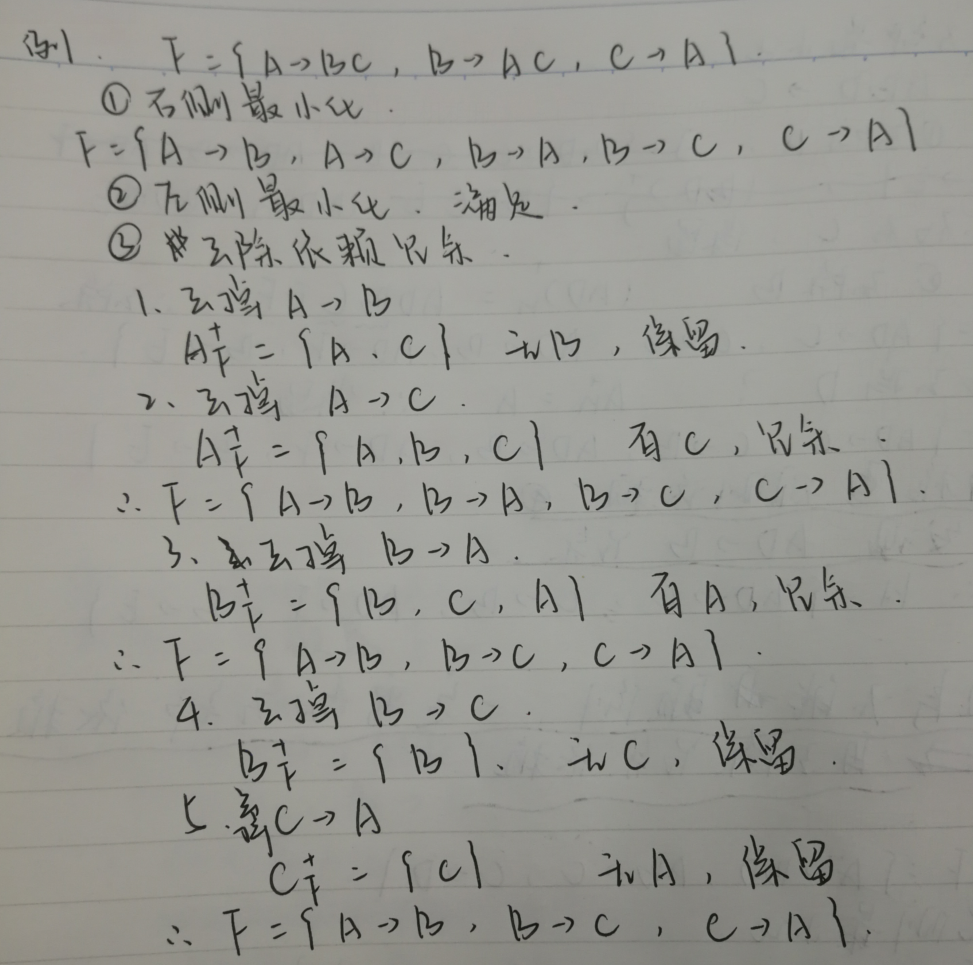 例1. F = { A→BC , B→AC , C→A } .
① 右侧最小化 .
F = { A→B , A→C , B→A , B→C , C→A }
② 左侧最小化 . 满足 .
③ 去除依赖冗余 .
1. 去掉 A→B
A⁺F = { A , C } 无B , 保留 .
2、去掉 A→C .
A⁺F = { A , B , C } 有C , 冗余 .
∴ F = { A→B , B→A , B→C , C→A } .
3、去掉 B→A .
B⁺F = { B , C , A } 有A , 冗余 .
∴ F = { A→B , B→C , C→A } .
4. 去掉 B→C .
B⁺F = { B } . 无C , 保留 .
5. C→A
C⁺F = { C } 无A , 保留
∴ F = { A→B , B→C , C→A } .